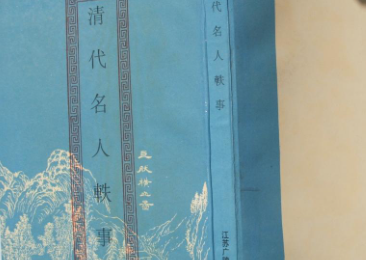 清代名人軼事
代名人軼事
江苏广